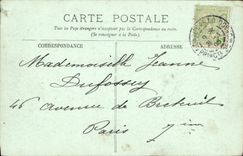 CARTE POSTALE
Tous les Pays étrangers n'acceptent pas la Correspondance au recto.
(Se renseigner à la Poste)
CORRESPONDANCE ADRESSE
Mademoiselle Jeanne
Dufossey
46 Avenue de Breteuil
Paris 7